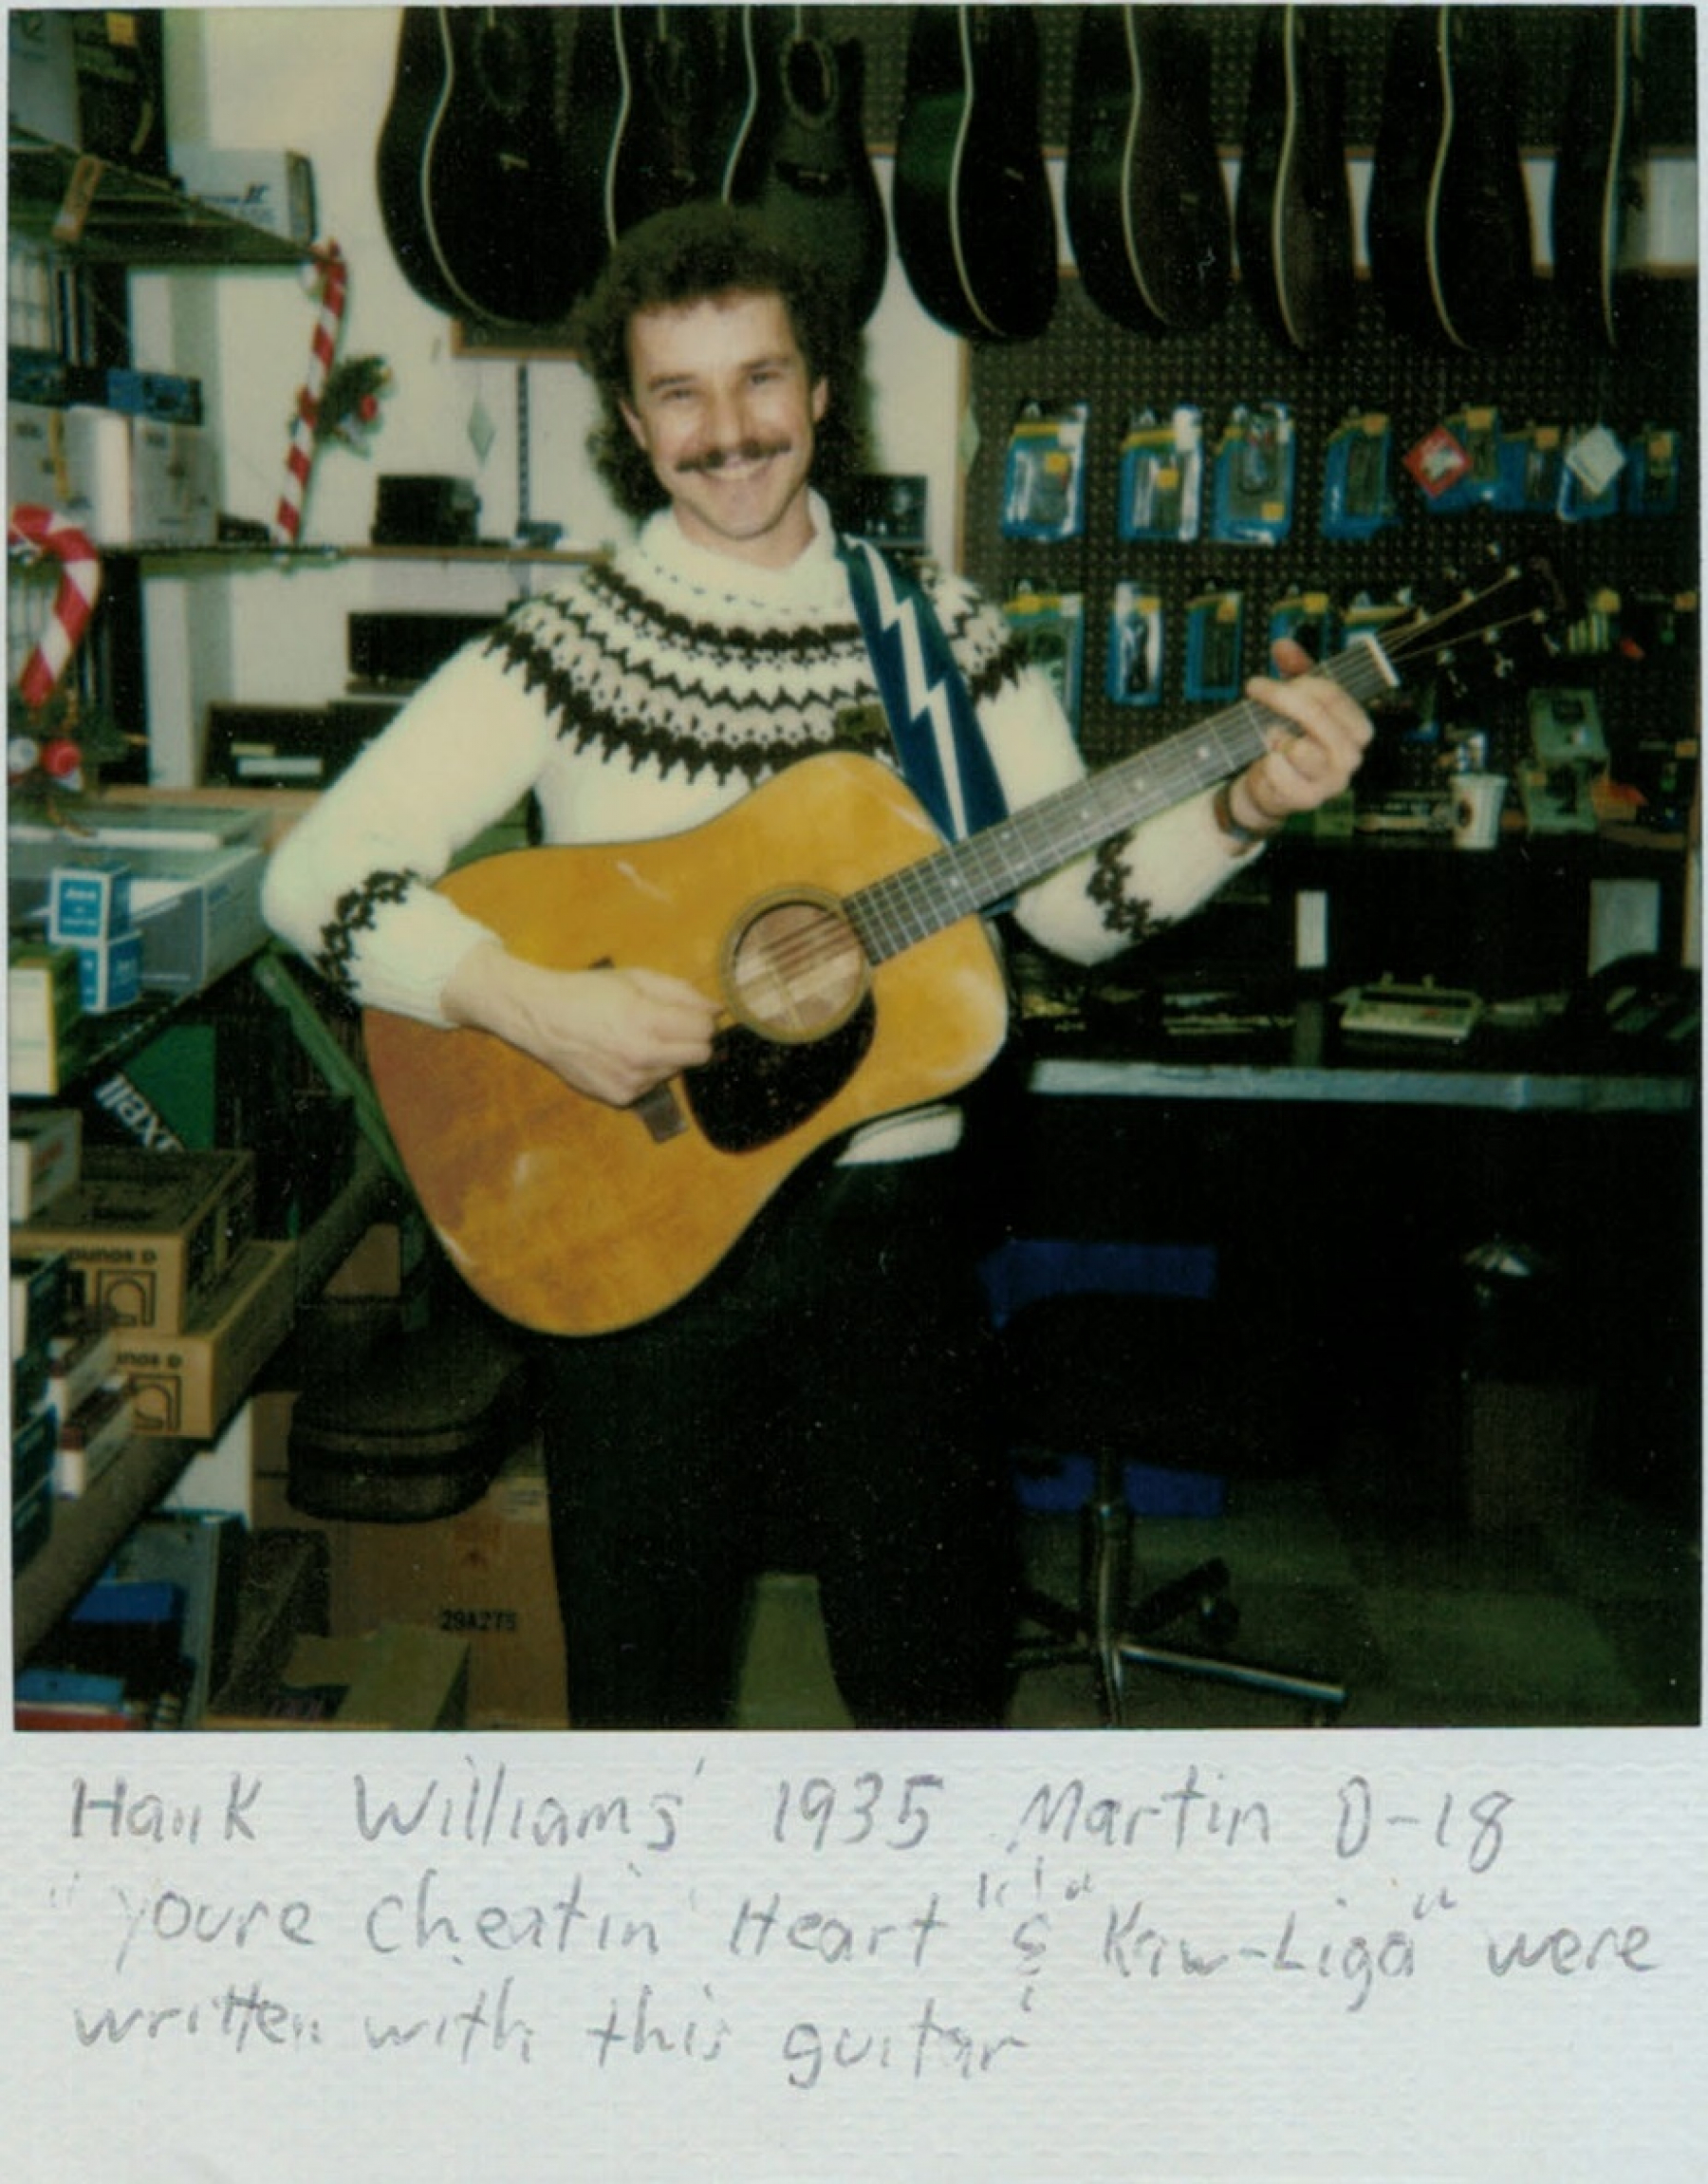 maxe
sound
sound
29A275
Hank Williams' 1935 Martin D-18
"youre cheatin' Heart" & "Kaw-Liga" were
written with this guitar